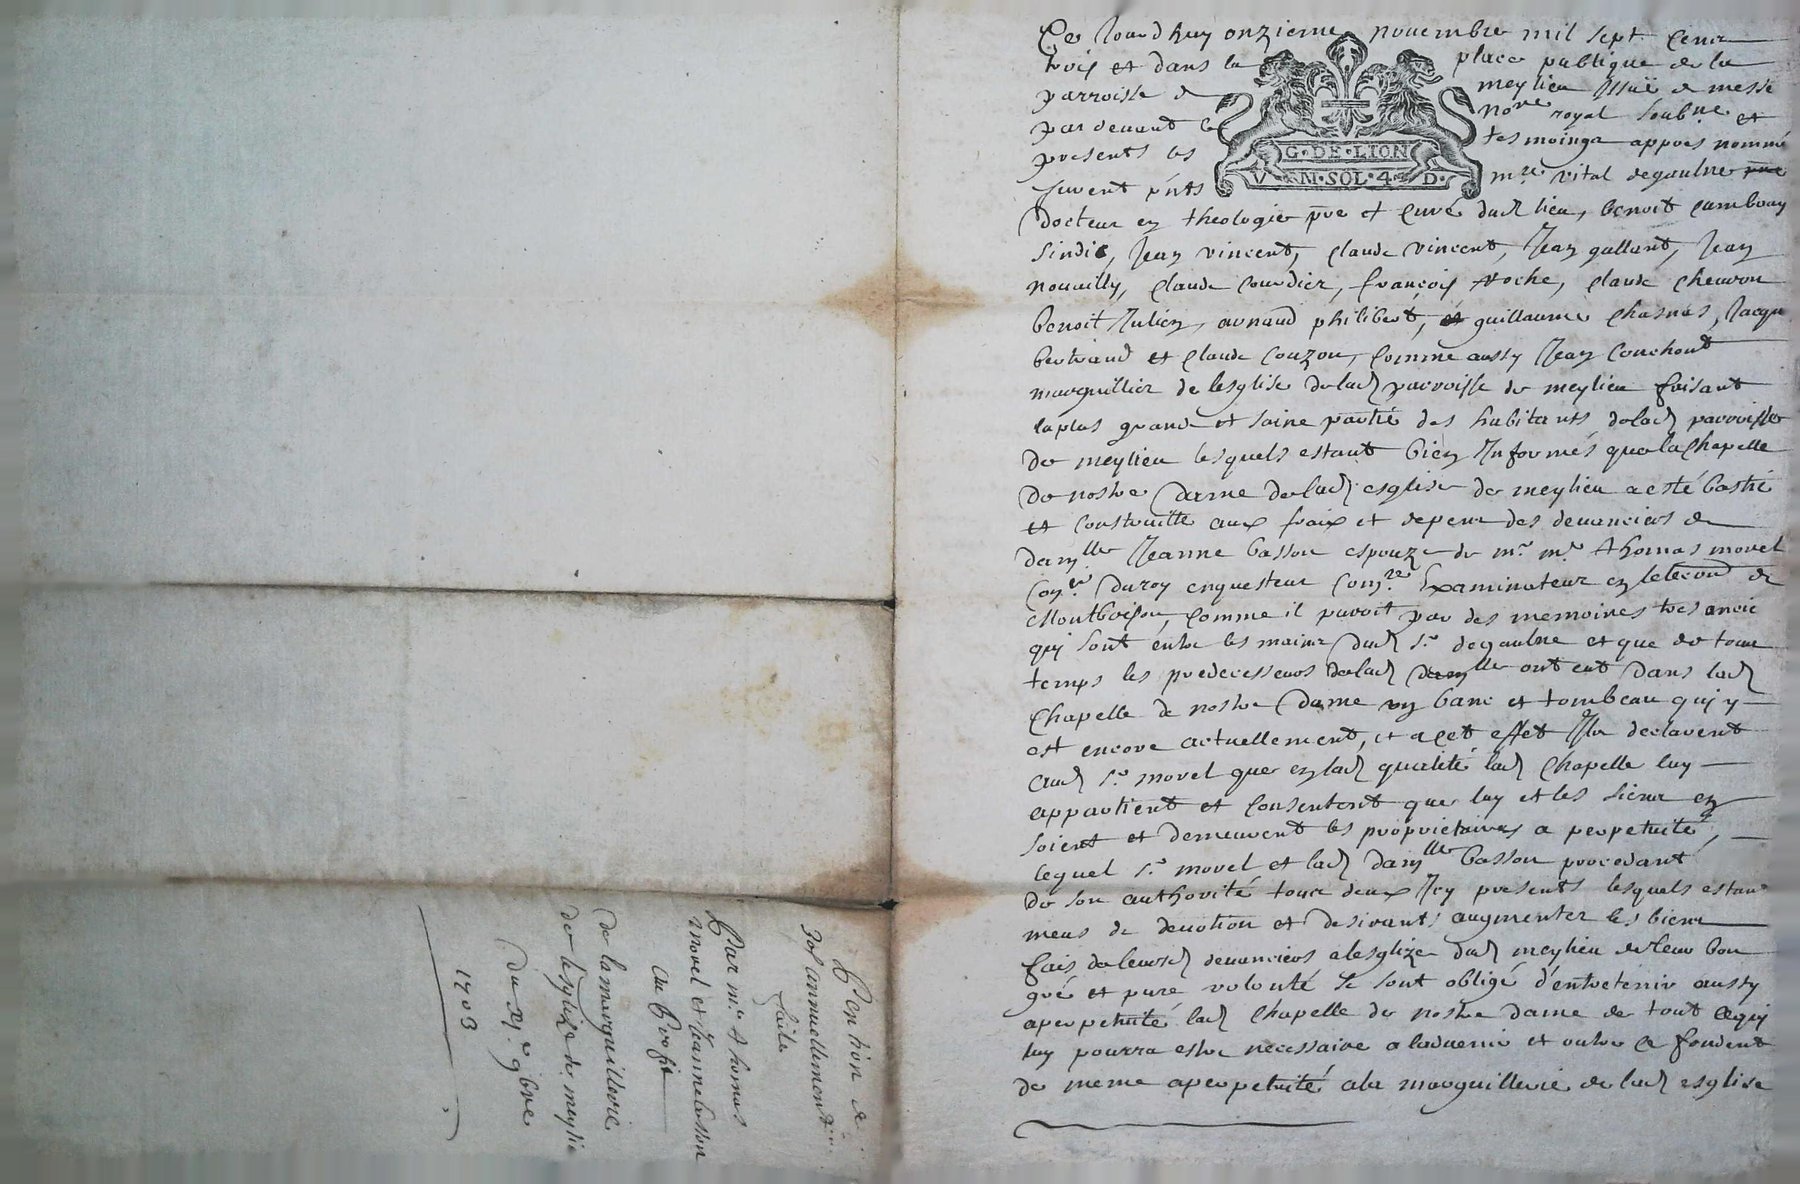 Ce Jourd'huy onzieme novembre mil sept cent
trois et dans la place publique de la
parroisse de meylieu Issüe de messe
par devant le no.re royal soubne et
presents les tesmoings appres nommé
G·DE·LION
V M·SOL·4·D·
furent pnts m.re vital degaulne
Docteur en theologie pre et curé dud lieu, benoit cambray
sindic, Jean vincent, claude vincent, Jean gallant, Jean
nouailly, claude courdier, françois Roche, claude chevron
benoit Julien, arnaud philibert, guillaume chasnes, Jacque
bertrand et claude couzon, comme aussy Jean couchont
marguillier de lesglise delad parroisse de meylieu faisant
la plus grande et saine partie des habitants delad parroisse
de meylieu lesquels estant bien Informés que la chapelle
de nostre Dame delad esglise de meylieu a esté bastie
et construitte aux fraix et depens des devanciers de
dam.lle Jeanne basson espouze de m.r m.e thomas morel
con.er Du roy enquesteur com.re Examinateur en lelection de
Montbrison, comme il paroit par des memoires tres ancie
qui sont entre les mains dud s.r degaulne et que de tout
temps les predecesseurs delad dam.lle ont eut dans lad
chapelle de nostre Dame un banc et tombeau qui y
est encore actuellement, et a cet effet Ils declarent
aud s.r morel que en lad qualité lad chapelle luy
appartient et consentent que luy et les siens en
soient et demeurent les proprietaires a perpetuité,
lequel s.r morel et lad dam.lle basson procedant
de son authorité tous deux Icy presents lesquels estan
meus de devotion et desirants augmenter les biens
fais de leursd devanciers a lesglize dud meylieu de leur bon
gré et pure volonté se sont obligé d'entretenir aussy
a perpetuité lad chapelle de nostre dame de tout ce qui
luy pourra estre necessaire a ladvenir et outre ce fondent
de meme a perpetuité a la marguillerie de lad esglise
Pention de
30s annuellement
faite
Par m.e thomas
morel et Jeanne basson
au Proffit
de la marguillerie
de lesglize de meylie
Du xj.e 9bre
1703